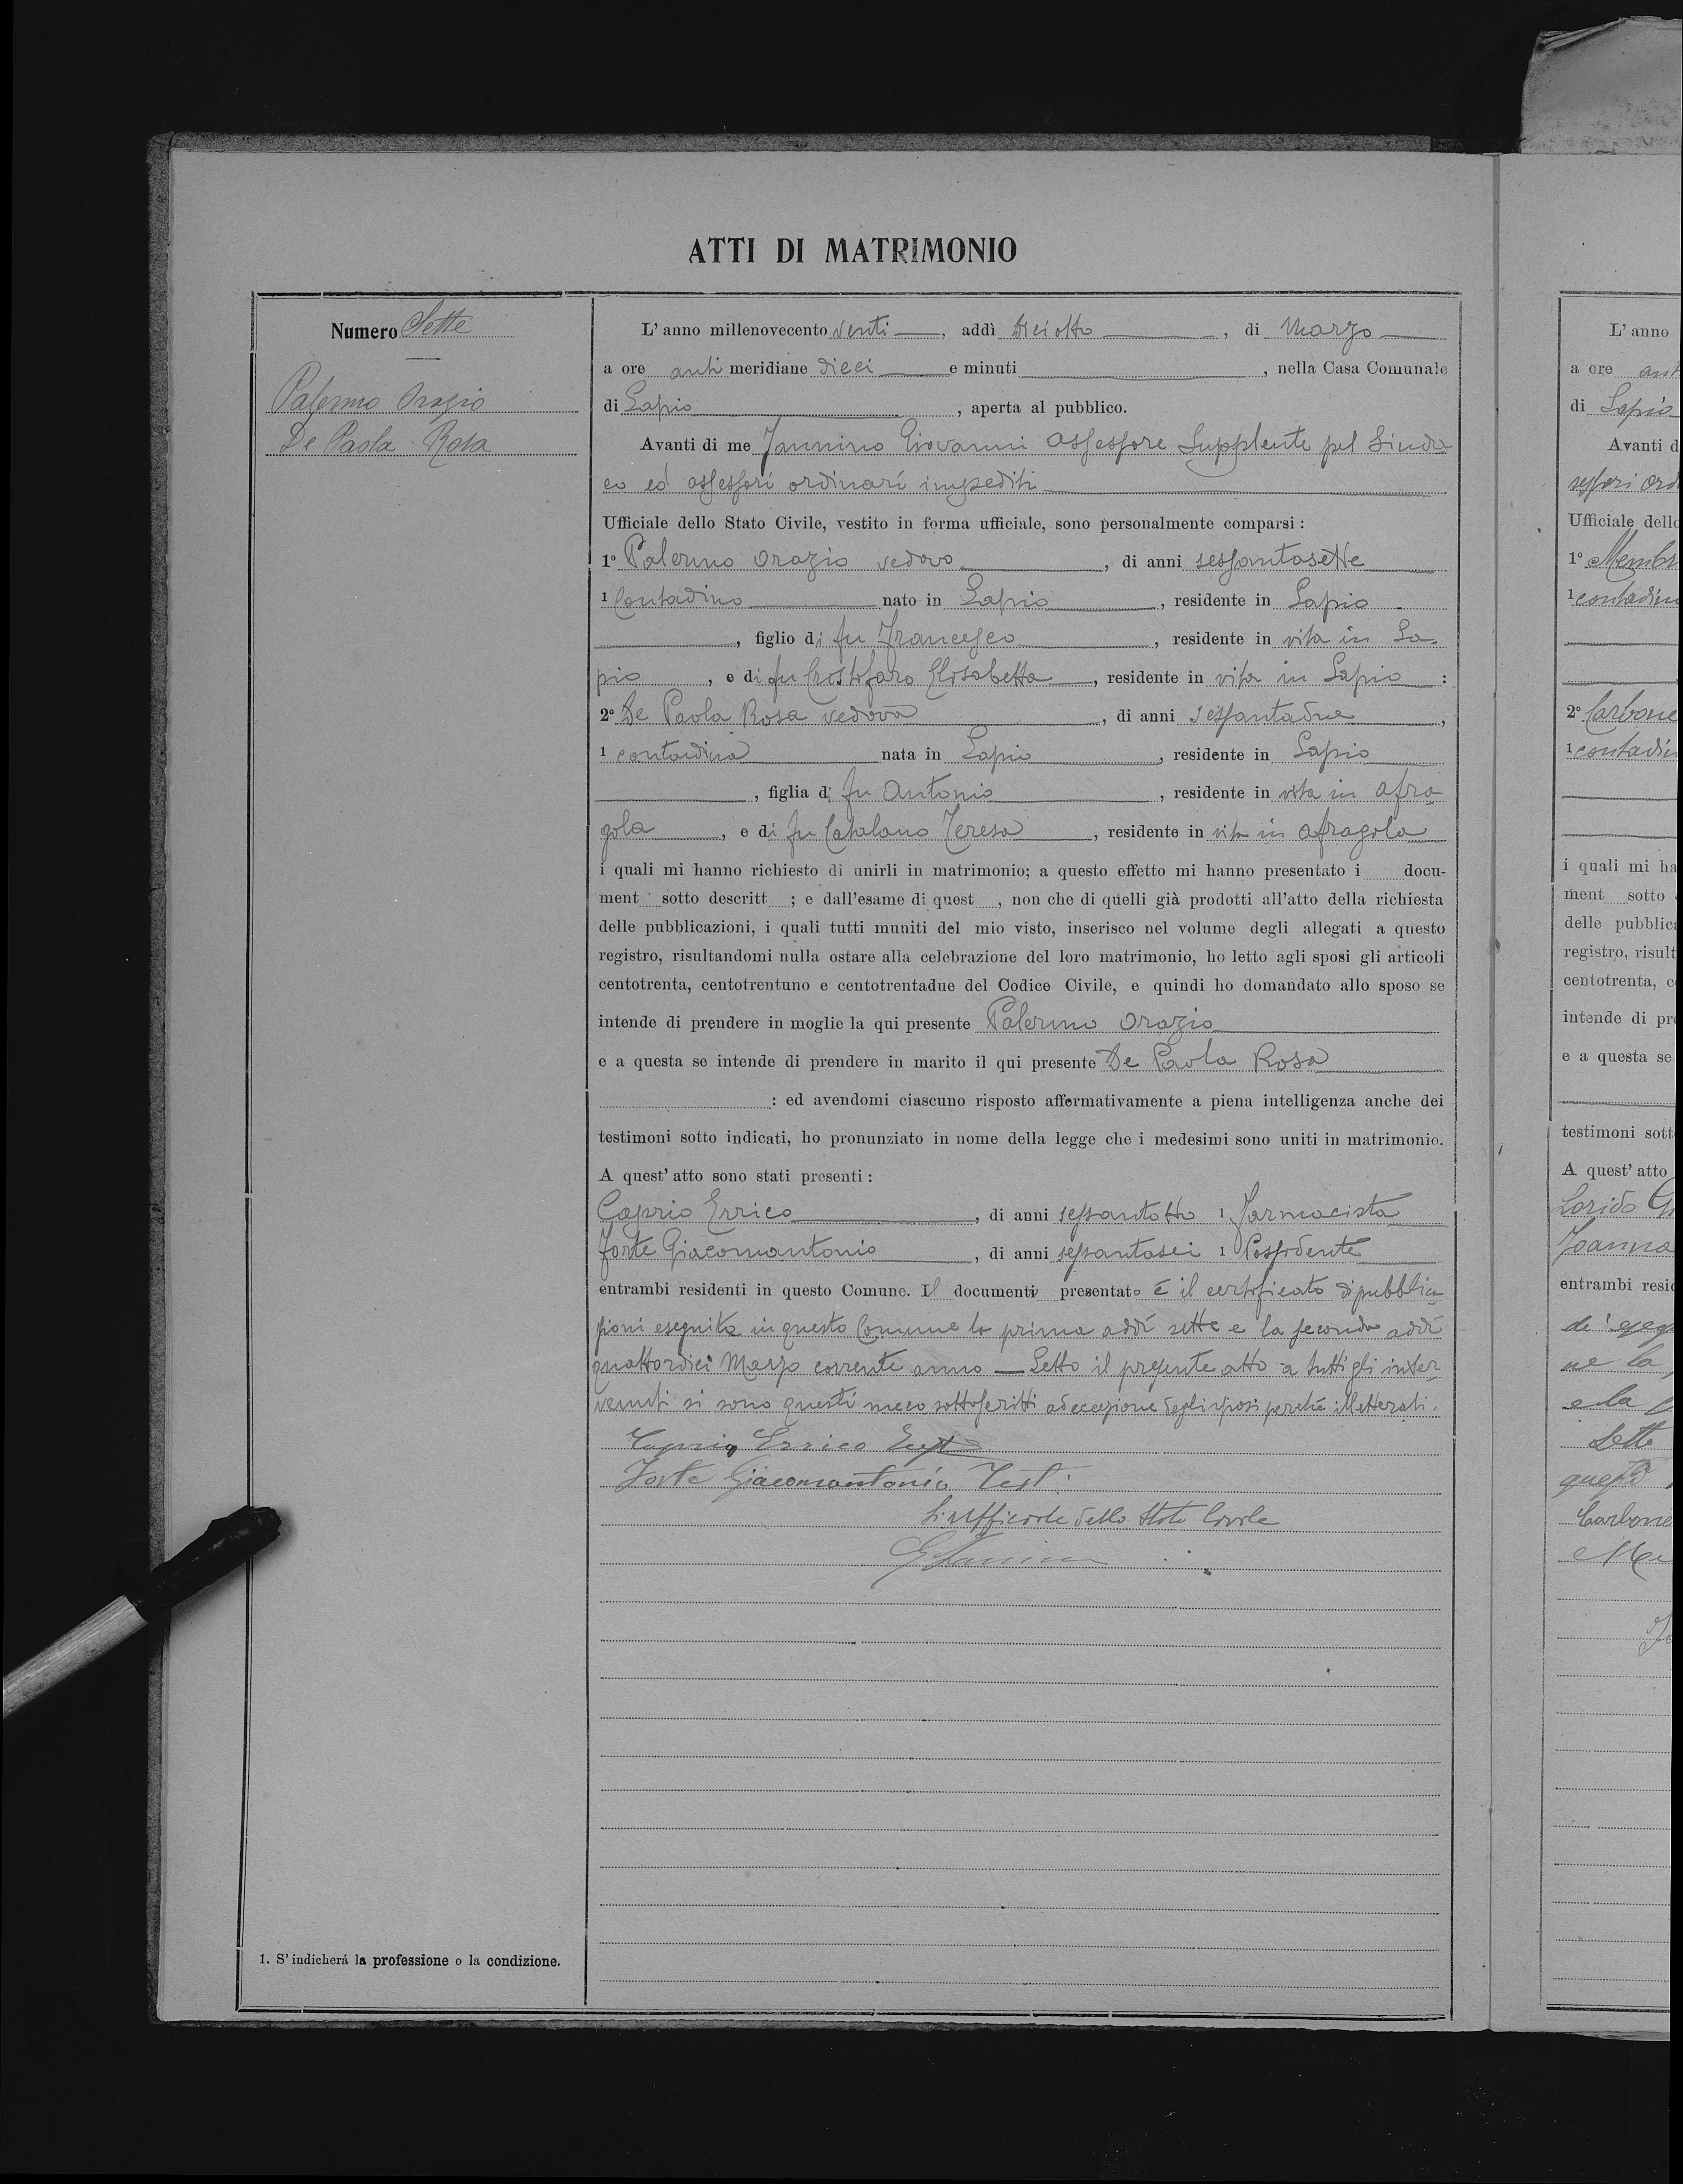 ATTI DI MATRIMONIO
Numero Sette
Palermo Orazio
De Paola Rosa
L'anno millenovecento venti, addì diciotto, di Marzo
a ore anti meridiane dieci e minuti, nella Casa Comunale
di Lapio, aperta al pubblico.
Avanti di me Jannino Giovanni Assessore Supplente pel Sinda
co ed assessori ordinari impediti
Ufficiale dello Stato Civile, vestito in forma ufficiale, sono personalmente comparsi:
1° Palermo Orazio vedovo, di anni sessantasette
1 Contadino nato in Lapio, residente in Lapio
, figlio di fu Francesco, residente in vita in La-
pio, e di fu Cristofaro Elisabetta, residente in vita in Lapio:
2° De Paola Rosa vedova, di anni sessantadue,
1 contadina nata in Lapio, residente in Lapio
, figlia di fu Antonio, residente in vita in Afra
gola, e di fu Catalano Teresa, residente in vita in Afragola
i quali mi hanno richiesto di unirli in matrimonio; a questo effetto mi hanno presentato i docu-
ment sotto descritt ; e dall'esame di quest , non che di quelli già prodotti all'atto della richiesta
delle pubblicazioni, i quali tutti muniti del mio visto, inserisco nel volume degli allegati a questo
registro, risultandomi nulla ostare alla celebrazione del loro matrimonio, ho letto agli sposi gli articoli
centotrenta, centotrentuno e centotrentadue del Codice Civile, e quindi ho domandato allo sposo se
intende di prendere in moglie la qui presente Palermo Orazio
e a questa se intende di prendere in marito il qui presente De Paola Rosa
: ed avendomi ciascuno risposto affermativamente a piena intelligenza anche dei
testimoni sotto indicati, ho pronunziato in nome della legge che i medesimi sono uniti in matrimonio.
A quest'atto sono stati presenti:
Caprio Errico, di anni sessantotto 1 Farmacista
Forte Giacomantonio, di anni sessantasei 1 Possidente
entrambi residenti in questo Comune. Il documento presentato è il certificato di pubblica
zioni eseguita in questo Comune la prima addì sette e la seconda addì
quattordici Marzo corrente anno — Letto il presente atto a tutti gli inter
venuti si sono questi meco sottoscritti ad eccezione degli sposi perché illetterati.
Caprio Errico Test
Forte Giacomantonio Test:
L'Ufficiale dello Stato Civile
1. S'indicherá la professione o la condizione.
L'anno
a ore ant
di Lapio
Avanti d
sessori ord
Ufficiale dello
1° Membr
1 contadin
2° Carbone
1 contadin
i quali mi ha
ment sotto
delle pubblica
registro, risult
centotrenta, c
intende di pre
e a questa se
testimoni sott
A quest'atto
Lorido
Joanna
entrambi resid
ne la
e la
Letto
questi
Carbone